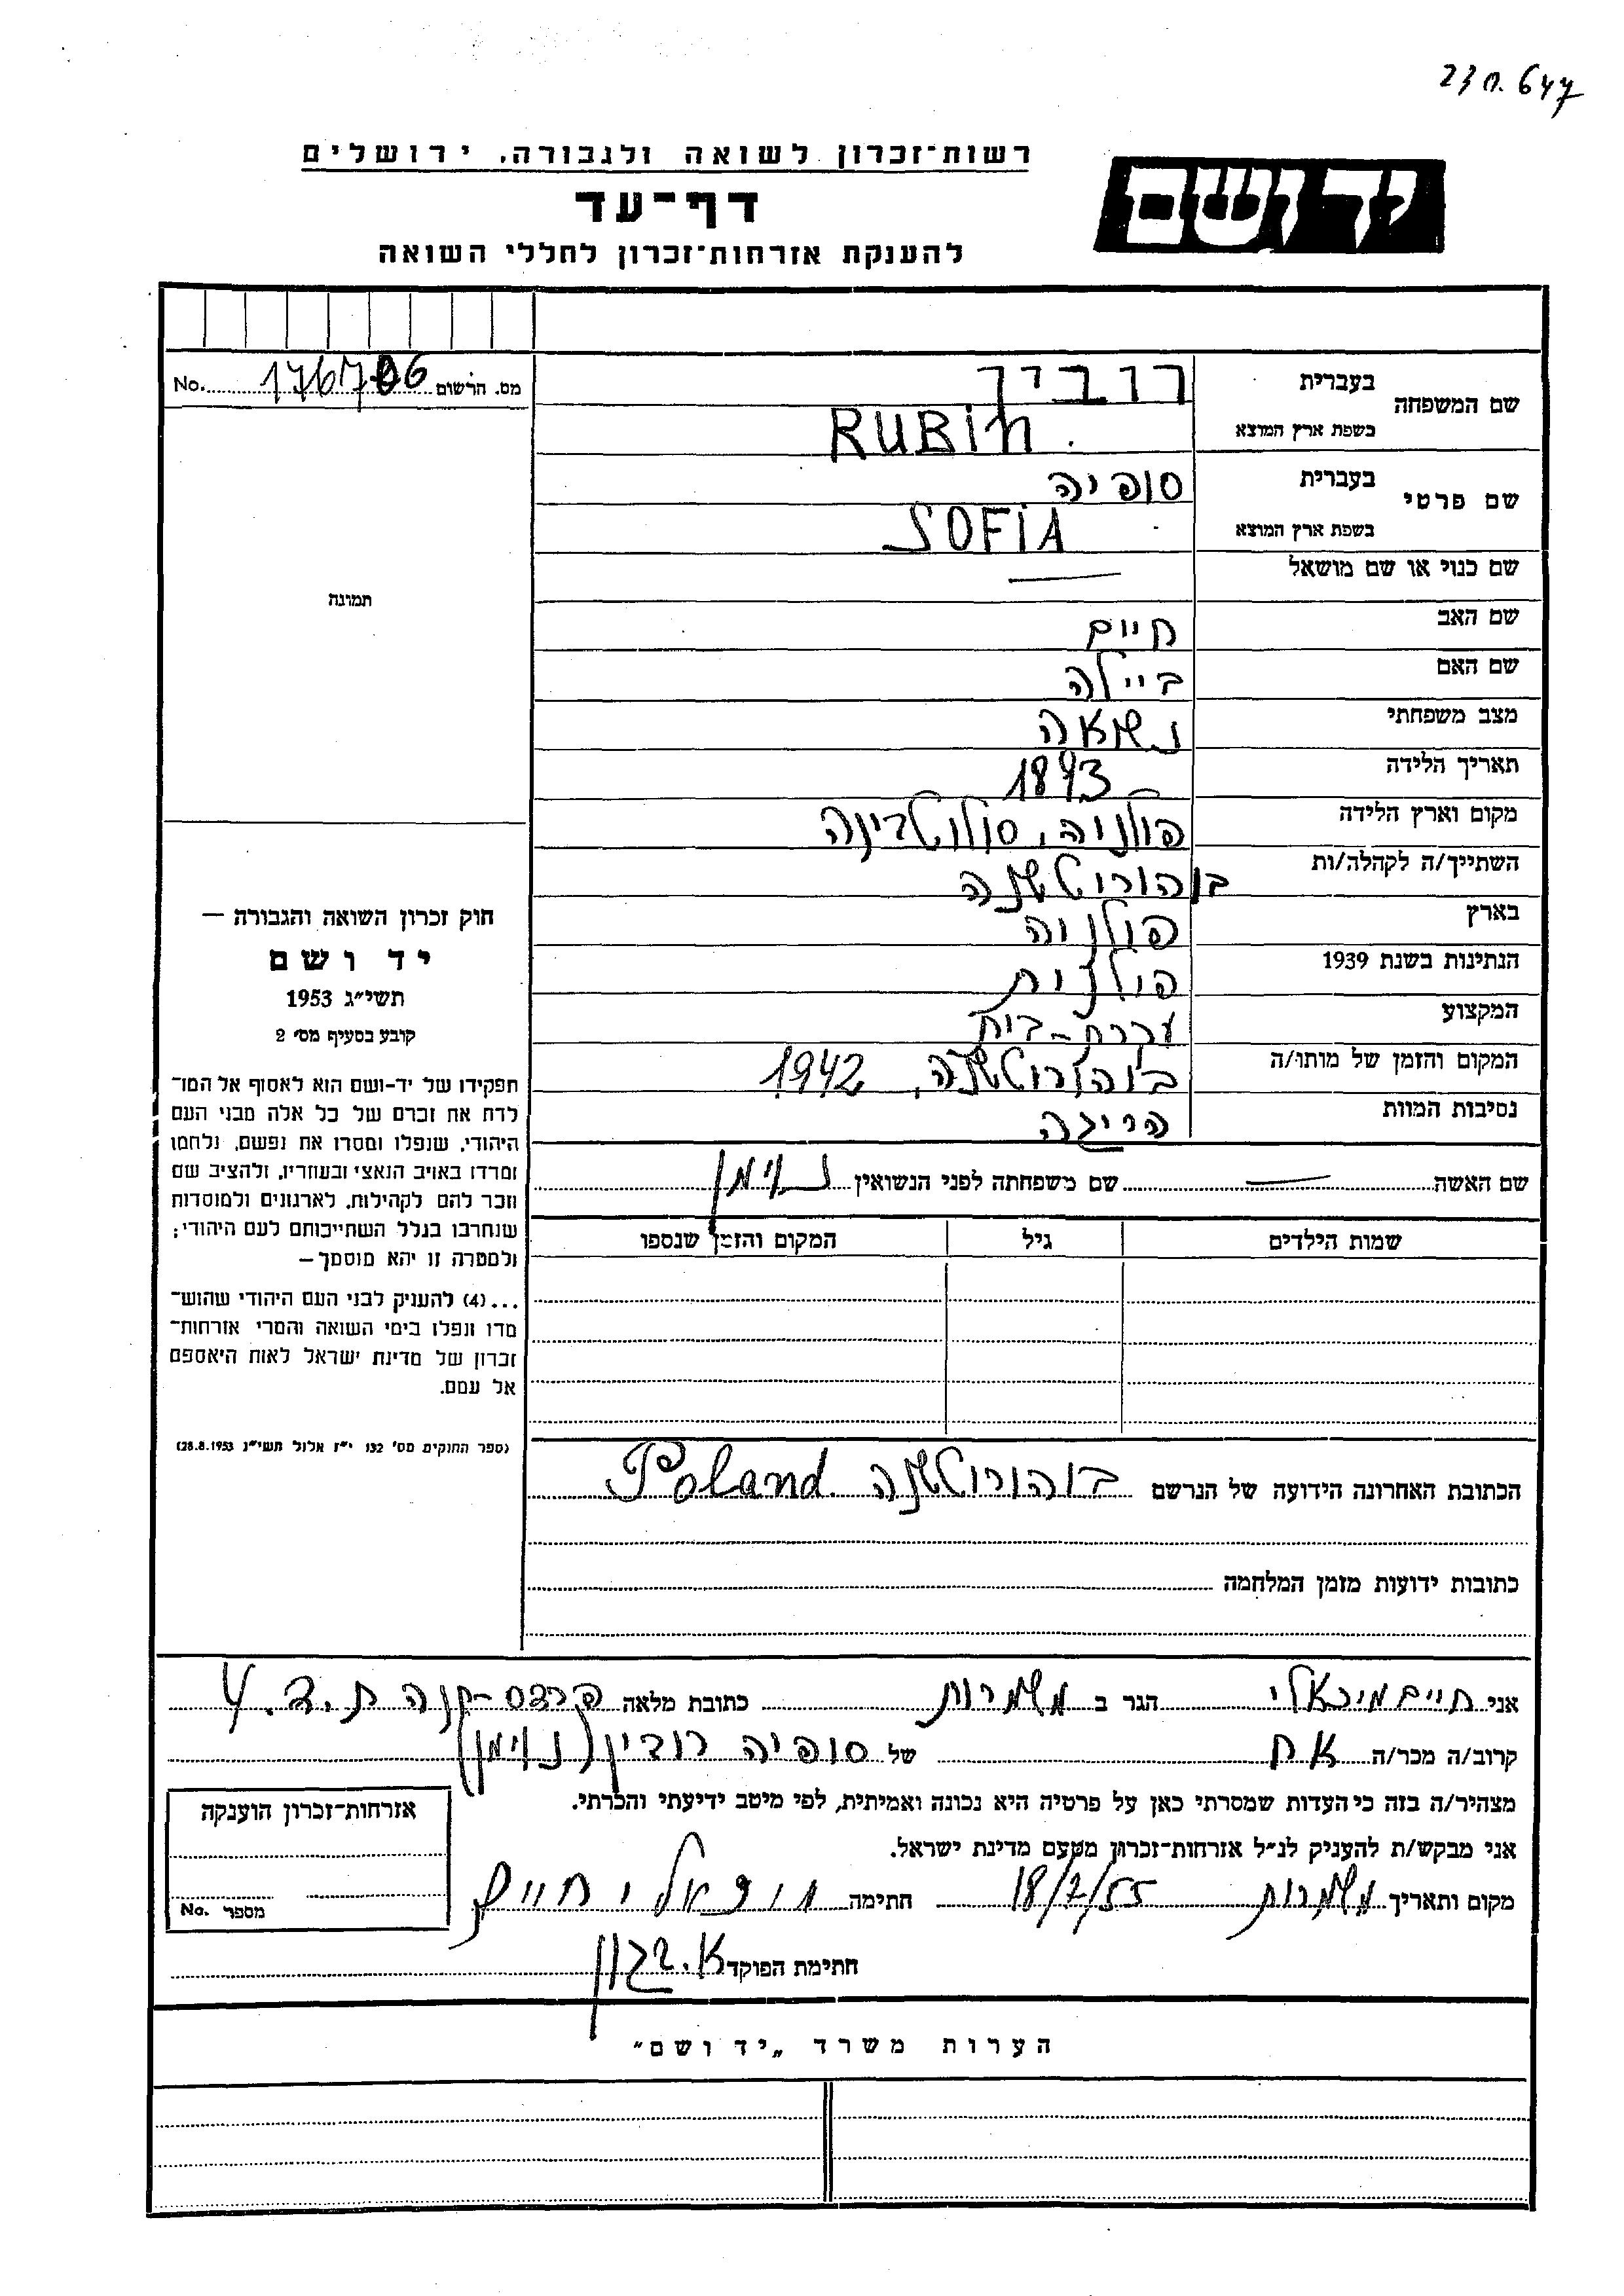 23 п. 647
רשות־זכרון לשואה ולגבורה, ירושלים
יד ושם
דף־עד
להענקת אזרחות־זכרון לחללי השואה
מס. הרשום 176706 No.
שם המשפחה בעברית רובין
בשפת ארץ המוצא RUBIN
שם פרטי בעברית סופיה
בשפת ארץ המוצא SOFIA
שם כנוי או שם מושאל —
תמונה
שם האב חיים
שם האם ביילה
מצב משפחתי נשואה
תאריך הלידה 1893
מקום וארץ הלידה פולניה,
השתייך/ה לקהלה/ות בוהורוטשנה
בארץ פולניה
הנתינות בשנת 1939 פולנית
המקצוע עקרת-בית
המקום והזמן של מותו/ה בוהורוטשנה, 1942
נסיבות המוות הריגה
שם האשה — שם משפחתה לפני הנשואין נוימן
שמות הילדים גיל המקום והזמן שנספו
חוק זכרון השואה והגבורה —
יד ושם
תשי״ג 1953
קובע בסעיף מס׳ 2
תפקידו של יד-ושם הוא לאסוף אל המו־
לדת את זכרם של כל אלה מבני העם
היהודי, שנפלו ומסרו את נפשם, נלחמו
ומרדו באויב הנאצי ובעוזריו, ולהציב שם
וזכר להם לקהילות, לארגונים ולמוסדות
שנחרבו בגלל השתייכותם לעם היהודי;
ולמטרה זו יהא מוסמך—
...(4) להעניק לבני העם היהודי שהוש־
מדו ונפלו בימי השואה והמרי אזרחות־
זכרון של מדינת ישראל לאות היאספם
אל עמם.
(ספר החוקים מס׳ 132 י״ז אלול תשי״ג 28.8.1953)
הכתובת האחרונה הידועה של הנרשם בוהורוטשנה Poland
כתובות ידועות מזמן המלחמה
אני חיים מיכאלי הגר ב משמרות כתובת מלאה פרדס-קנה ת.ד. 4
קרוב/ה מכר/ה אח של סופיה רובין (נוימן)
מצהיר/ה בזה כי העדות שמסרתי כאן על פרטיה היא נכונה ואמיתית, לפי מיטב ידיעתי והכרתי.
אני מבקש/ת להעניק לנ״ל אזרחות־זכרון מטעם מדינת ישראל.
מקום ותאריך משמרות 18/7/55 חתימה מיכאלי חיים
אזרחות־זכרון הוענקה
מספר No.
חתימת הפוקד
הערות משרד „יד ושם״